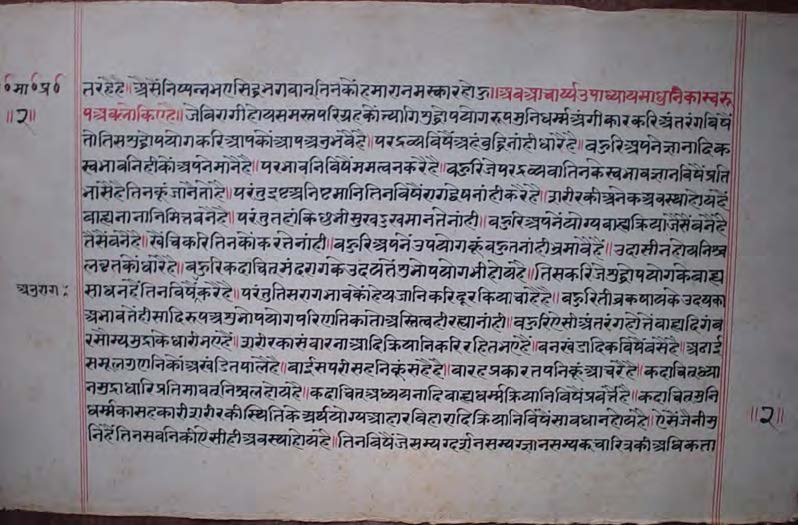 ६मा६प्र६
॥२॥
तरहैहैं॥अैसैंनिष्पन्नभएसिद्धभगवानतिनकोंहमारानमस्कारहोऊ॥अबआचार्य्यउपाध्यायसाधुनिकास्वरू
पअवलोकिएहै॥जेविरागीहोयसमस्तपरिग्रहकोंत्यागिशुद्धोपयोगरूपमुनिधर्म्मअंगीकारकरिअंतरंगविषैं
तोतिसशुद्धोपयोगकरिआपकोंआपअनुभवैहैं॥परद्रव्यविषैंअहंबुद्धिनांहीधारैहैं॥बहुरिअपनेज्ञानादिक
स्वभावनिहीकोंअपनेमानैहैं॥परभावनिविषैंममत्वनकरैहैं॥बहुरिजेपरद्रव्यवातिनकेस्वभावज्ञानविषैंप्रति
भांसैहैंतिनकूंजानेतोहैं॥परंतुइष्टअनिष्टमानितिनविषैंरागद्वेषनांहीकरैहैं॥शरीरकीअनेकअवस्थाहोयहैं
बाह्यनानानिमित्तबनैहैं॥परंतुतहांकिछभीसुखदुखमानतेनांही॥बहुरिअपनेयोग्यबाह्यक्रियाजैसैंबनैहैं
तैसैंबनैहैं॥खेंचिकरितिनकोंकरतेनांही॥बहुरिअपनेंउपयोगकूंबहुतनांहीभ्रमावेहैं॥उदासीनहोयनिश्च
लवृत्तकोंधारैहैं॥बहुरिकदाचित्मंदरागकेउदयतेंशुभोपयोगभीहोयहै॥तिसकरिजेशुद्धोपयोगकेबाह्य
अनुरागः
साधनहैंतिनविषैंकरैहैं॥परंतुतिसरागभावकोंहेयजानिकरिदूरकियाचाहैहैं॥बहुरितीव्रकषायकेउदयका
अभावतेंहींसादिरूपअशुभोपयोगपरिणतिकातोअस्तित्वहीरह्यानांही॥बहुरिऐसीअंतरंगहोतेंबाह्यदिगंब
रसौम्यमुद्राकेधारीभएहैं॥शरीरकासंवारनाआदिक्रियानिकरिरहितभएहैं॥वनखंडादिकविषैंबसैहैं॥अठाई
समूलगुणनिकोंअखंडितपालैहैं॥बाईसपरीसहनिकूंसहैहैं॥बारहप्रकारतपनिकूंआचरैहैं॥कदाचित्ध्या
नमुद्राधारिप्रतिमावत्निश्चलहोयहैं॥कदाचित्अध्ययनादिबाह्यधर्म्मक्रियानिविषैंप्रवर्त्तैहैं॥कदाचित्मुनि
धर्म्मकासहकारीशरीरकीस्थितिकेअर्थयोग्यआहारविहारादिक्रियानिविषैंसावधानहोयहैं॥ऐसैंजैनीमु
निहैंतिनसबनिकीऐसीहीअवस्थाहोयहै॥तिनविषैंजेसम्यग्दर्शनसम्यग्ज्ञानसम्यक्चारित्रकीअधिकता
॥२॥